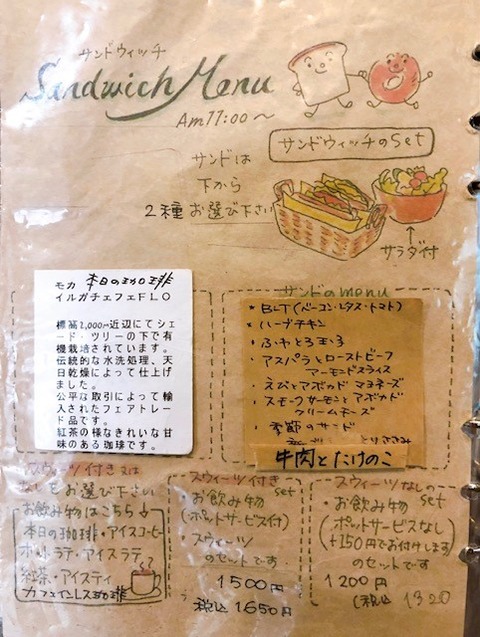 サンドウィッチ
Sandwich Menu
Am11:00〜
サンドウィッチのset
サンドは
下から
2種お選び下さい
サラダ付
モカ 本日の珈琲
イルガチェフェFLO
標高2,000m近辺にてシェ
ード・ツリーの下で有
機栽培されています。
伝統的な水洗処理、天
日乾燥によって仕上げ
ました。
公平な取引によって輸
入されたフェアトレー
ド品です。
紅茶の様なきれいな甘
味のある珈琲です。
サンドのmenu
* BLT(ベーコン・レタス・トマト)
* ハーブチキン
・ふわとろ玉子
・アスパラとローストビーフ
アーモンドスライス
・えびとアボカド マヨネーズ
・スモークサーモンとアボカド
クリームチーズ
・季節のサンド
牛肉とたけのこ
スウィーツ付き又は
なしをお選び下さい
お飲み物はこちら↓
本日の珈琲・アイスコーヒー
ホットラテ・アイスラテ
紅茶・アイスティ
カフェインレス珈琲
スウィーツ付き
set
・お飲み物
(ポットサービス付)
・スウィーツ
のセットです
1500円
税込1650円
スウィーツなしの
set
・お飲み物
(ポットサービスなし)
(+150円でお付けします)
のセットです
1200円
(税込 1320